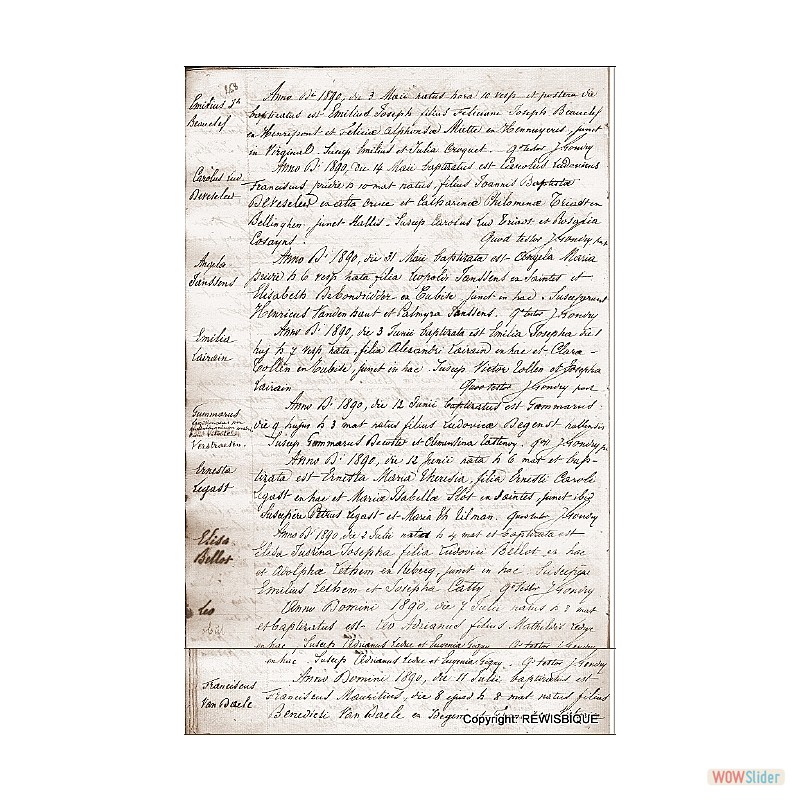 253
Emilius Jh
Beauclef
Anno Di 1890, die 3 Maii natus hora 10 vesp et postera die
baptizatus est Emilius Joseph filius Feliciani Joseph Beauclef
ex Henripont et Felicia alphonsia Matte ex Hennuyeres, junct
in Virginal. Suscep Emilius et Julia Croquet. q testor J. Gondry
Carolus Lud
Deveseleer
Anno Di 1890, die 14 Maii baptizatus est Carolus Ludovicus
Franciscus pridie h 10 mat natus, filius Joannis Baptista
Deveseleer ex alta cruce et Catharina Philomena Triest ex
Bellinghen, junct Hallis. Suscep Carolus Lud Triest et Rosalia
Cosyns. Quod testor J. Gondry
Angela
Janssens
Anno Di 1890, die 31 Maii baptizata est Angela Maria
pridie h 6 vesp nata filia Leopoldi Janssens ex Saintes et
Elisabeth Decondridder ex Tubize junct in hac. Susceperunt
Henricus Vandenhaut et Palmyra Janssens. q testor J. Gondry
Emilia
Lairain
Anno Di 1890, die 3 Junii baptizata est Emilia Josepha die 1
huj h 7 vesp nata, filia Alexandri Lairain ex hac et Clara
Tollen ex Tubize, junct in hac. Suscep Victor Tollen et Josepha
Lairain Quod testor J. Gondry
Gummarus
Verstraeten
Anno Di 1890, die 12 Junii baptizatus est Gummarus
die 9 hujus h 3 mat natus filius Ludovica Begenst
Suscep Gummarus Decoster et Clementina q test J. Gondry
Ernesta
Legast
Anno Di 1890, die 12 Junii nata h 6 mat et bap-
tizata est Ernesta Maria Theresia, filia Ernesti Caroli
Legast ex hac et Maria Isabella Slot ex Saintes, junct ibid
Suscepere Petrus Legast et Maria Th Tilman. Quod test J. Gondry
Elisa
Bellot
Anno Di 1890 die 2 Julii nata h 4 mat et baptizata est
Elisa Justina Josepha filia Ludovici Bellot ex hac
et Adolpha Lethem ex Rebecq, junct in hac Suscepere
Emilius Lethem et Josepha Catty q testor J. Gondry
Leo
Anno Domini 1890, die 7 Julii natus h 3 mat
et baptizatus est Leo Adrianus filius Mathildis
ex hac, Suscep Adrianus et Eugenia Gigny. Q testor J. Gondry
ex hac. Suscep Adrianus et Eugenia Gigny. Q testor J. Gondry
Franciscus
Van Daele
Anno Domini 1890, die 11 Julii baptizatus est
Franciscus Mauritius, die 8 ejusd h 8 mat natus filius
Benedicti Van Daele ex
Copyright: REWISBIQUE
WOWSlider